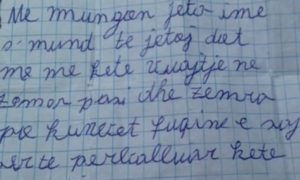 Me mungon jeto ime
s mund te jetoj dot
me me kete vuajtje ne
zemer pasi dhe zemra
po kuncet fuqine e saj
per te kete